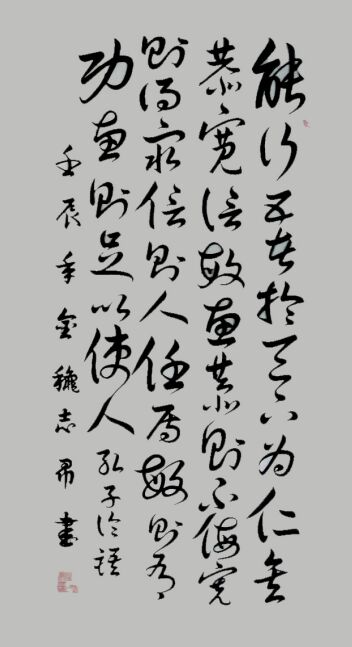 能行五者於天下為仁矣
恭寬信敏惠恭則不侮寬
則得眾信則人任焉敏則有
功惠則足以使人孔子論語
壬辰年金穗志書